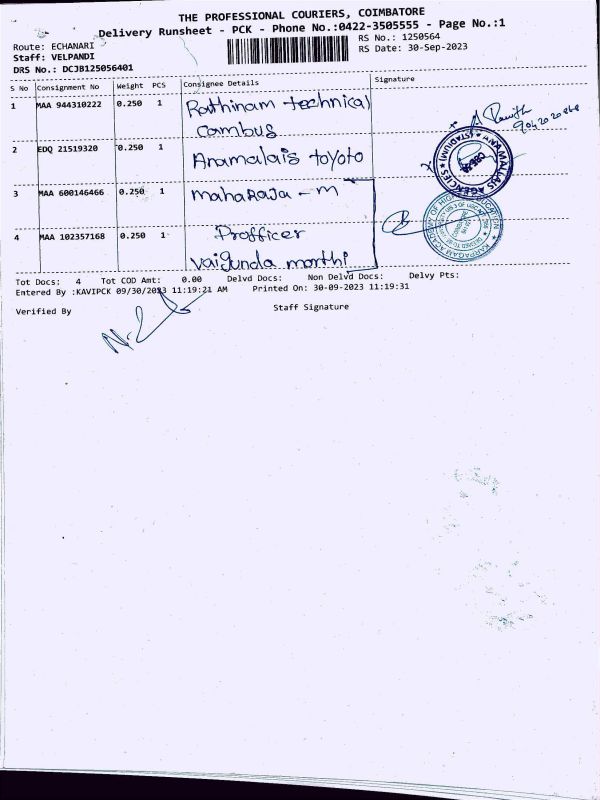 THE PROFESSIONAL COURIERS, COIMBATORE
Delivery Runsheet - PCK - Phone No.:0422-3505555 - Page No.:1
Route: ECHANARI RS No.: 1250564
Staff: VELPANDI RS Date: 30-Sep-2023
DRS No.: DCJB125056401
S No Consignment No Weight PCS Consignee Details Signature
1 MAA 944310222 0.250 1 Rathinam technical
cambus
2 EDQ 21519320 0.250 1 Anamalais toyoto
3 MAA 600146466 0.250 1 maharaja - m
4 MAA 102357168 0.250 1 Profficer
vaigunda morthi
Tot Docs: 4 Tot COD Amt: 0.00 Delvd Docs: Non Delvd Docs: Delvy Pts:
Entered By :KAVIPCK 09/30/2023 11:19:21 AM Printed On: 30-09-2023 11:19:31
Verified By Staff Signature